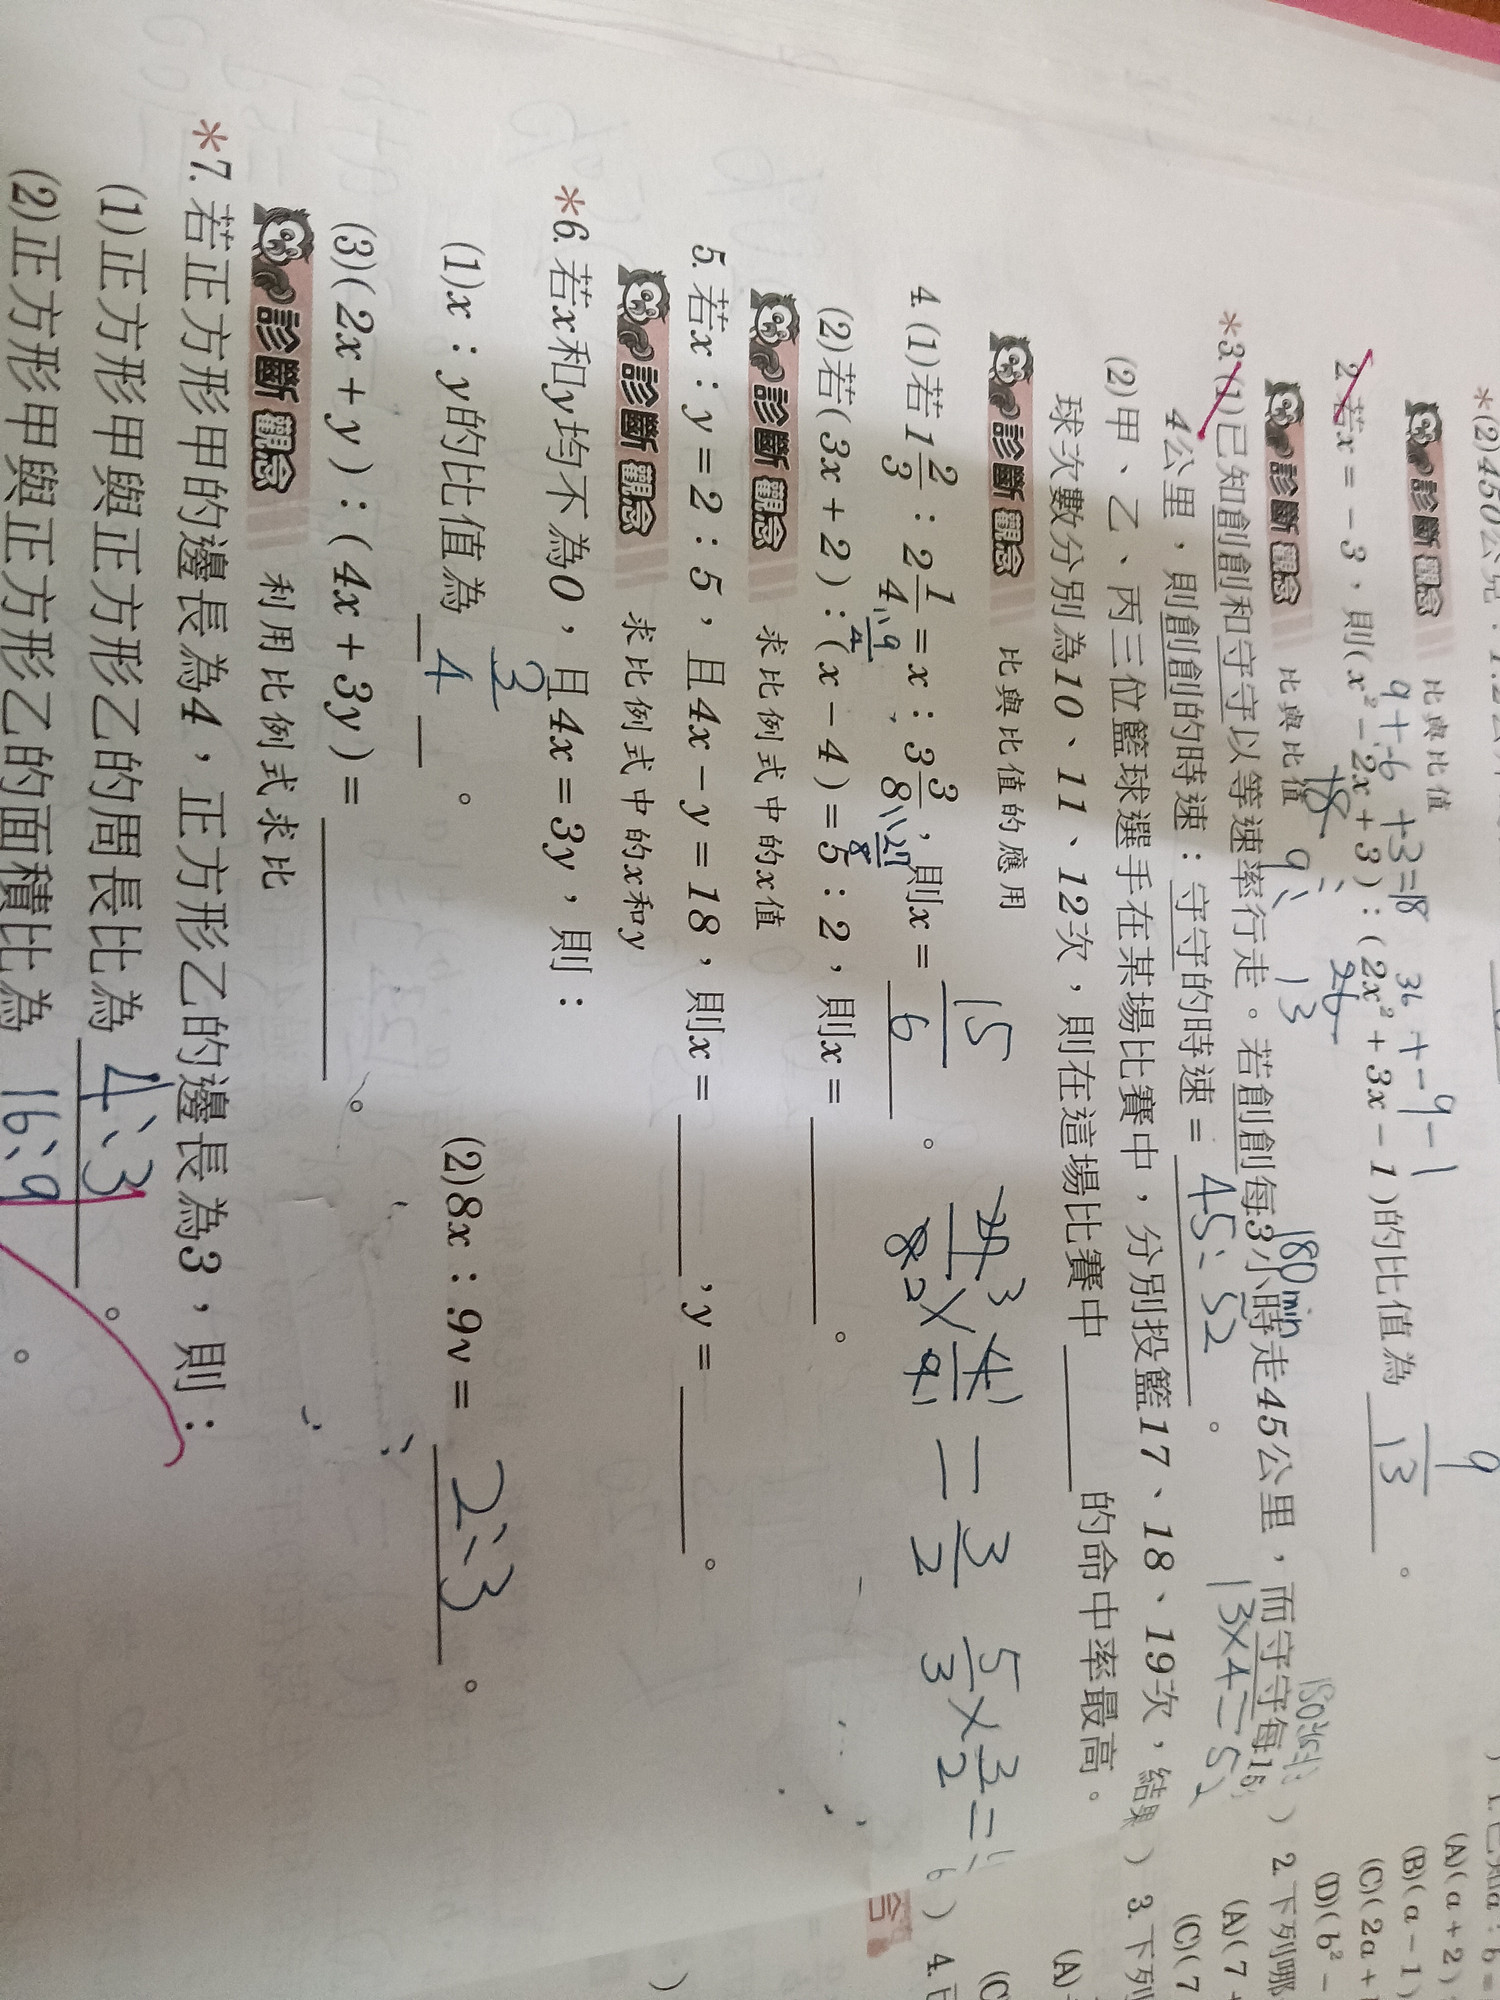 *(2)450公克：1.2公
診斷觀念 比與比值
9+-6+3=18 36+-9-1
2.若x=-3，則(x²-2x+3)：(2x²+3x-1)的比值為 9/13 。
18 26
9:13
診斷觀念 比與比值
180min
*3.(1)已知創創和守守以等速率行走。若創創每3小時走45公里，而守守每15
4公里，則創創的時速：守守的時速= 45:52 。
13×4=52
(2)甲、乙、丙三位籃球選手在某場比賽中，分別投籃17、18、19次，結果
球次數分別為10、11、12次，則在這場比賽中 的命中率最高。
診斷觀念 比與比值的應用
4.(1)若1 2/3：2 1/4=x：3 3/8，則x= 15/6 。
9/4 27/8
27/8×4/9=3/2 5/3×3/2=
(2)若(3x+2)：(x-4)=5：2，則x= 。
診斷觀念 求比例式中的x值
5.若x：y=2：5，且4x-y=18，則x= ，y= 。
診斷觀念 求比例式中的x和y
*6.若x和y均不為0，且4x=3y，則：
(1)x：y的比值為 3/4 。 (2)8x：9y= 2:3 。
(3)(2x+y)：(4x+3y)= 。
診斷觀念 利用比例式求比
*7.若正方形甲的邊長為4，正方形乙的邊長為3，則：
(1)正方形甲與正方形乙的周長比為 4:3 。
(2)正方形甲與正方形乙的面積比為 16:9 。
(A)(a+2)
(B)(a-1)
(C)(2a+
(D)(b²-
) 2.下列哪
(A)(7+
(C)(7
) 3.下列
(A)
(C
) 4.